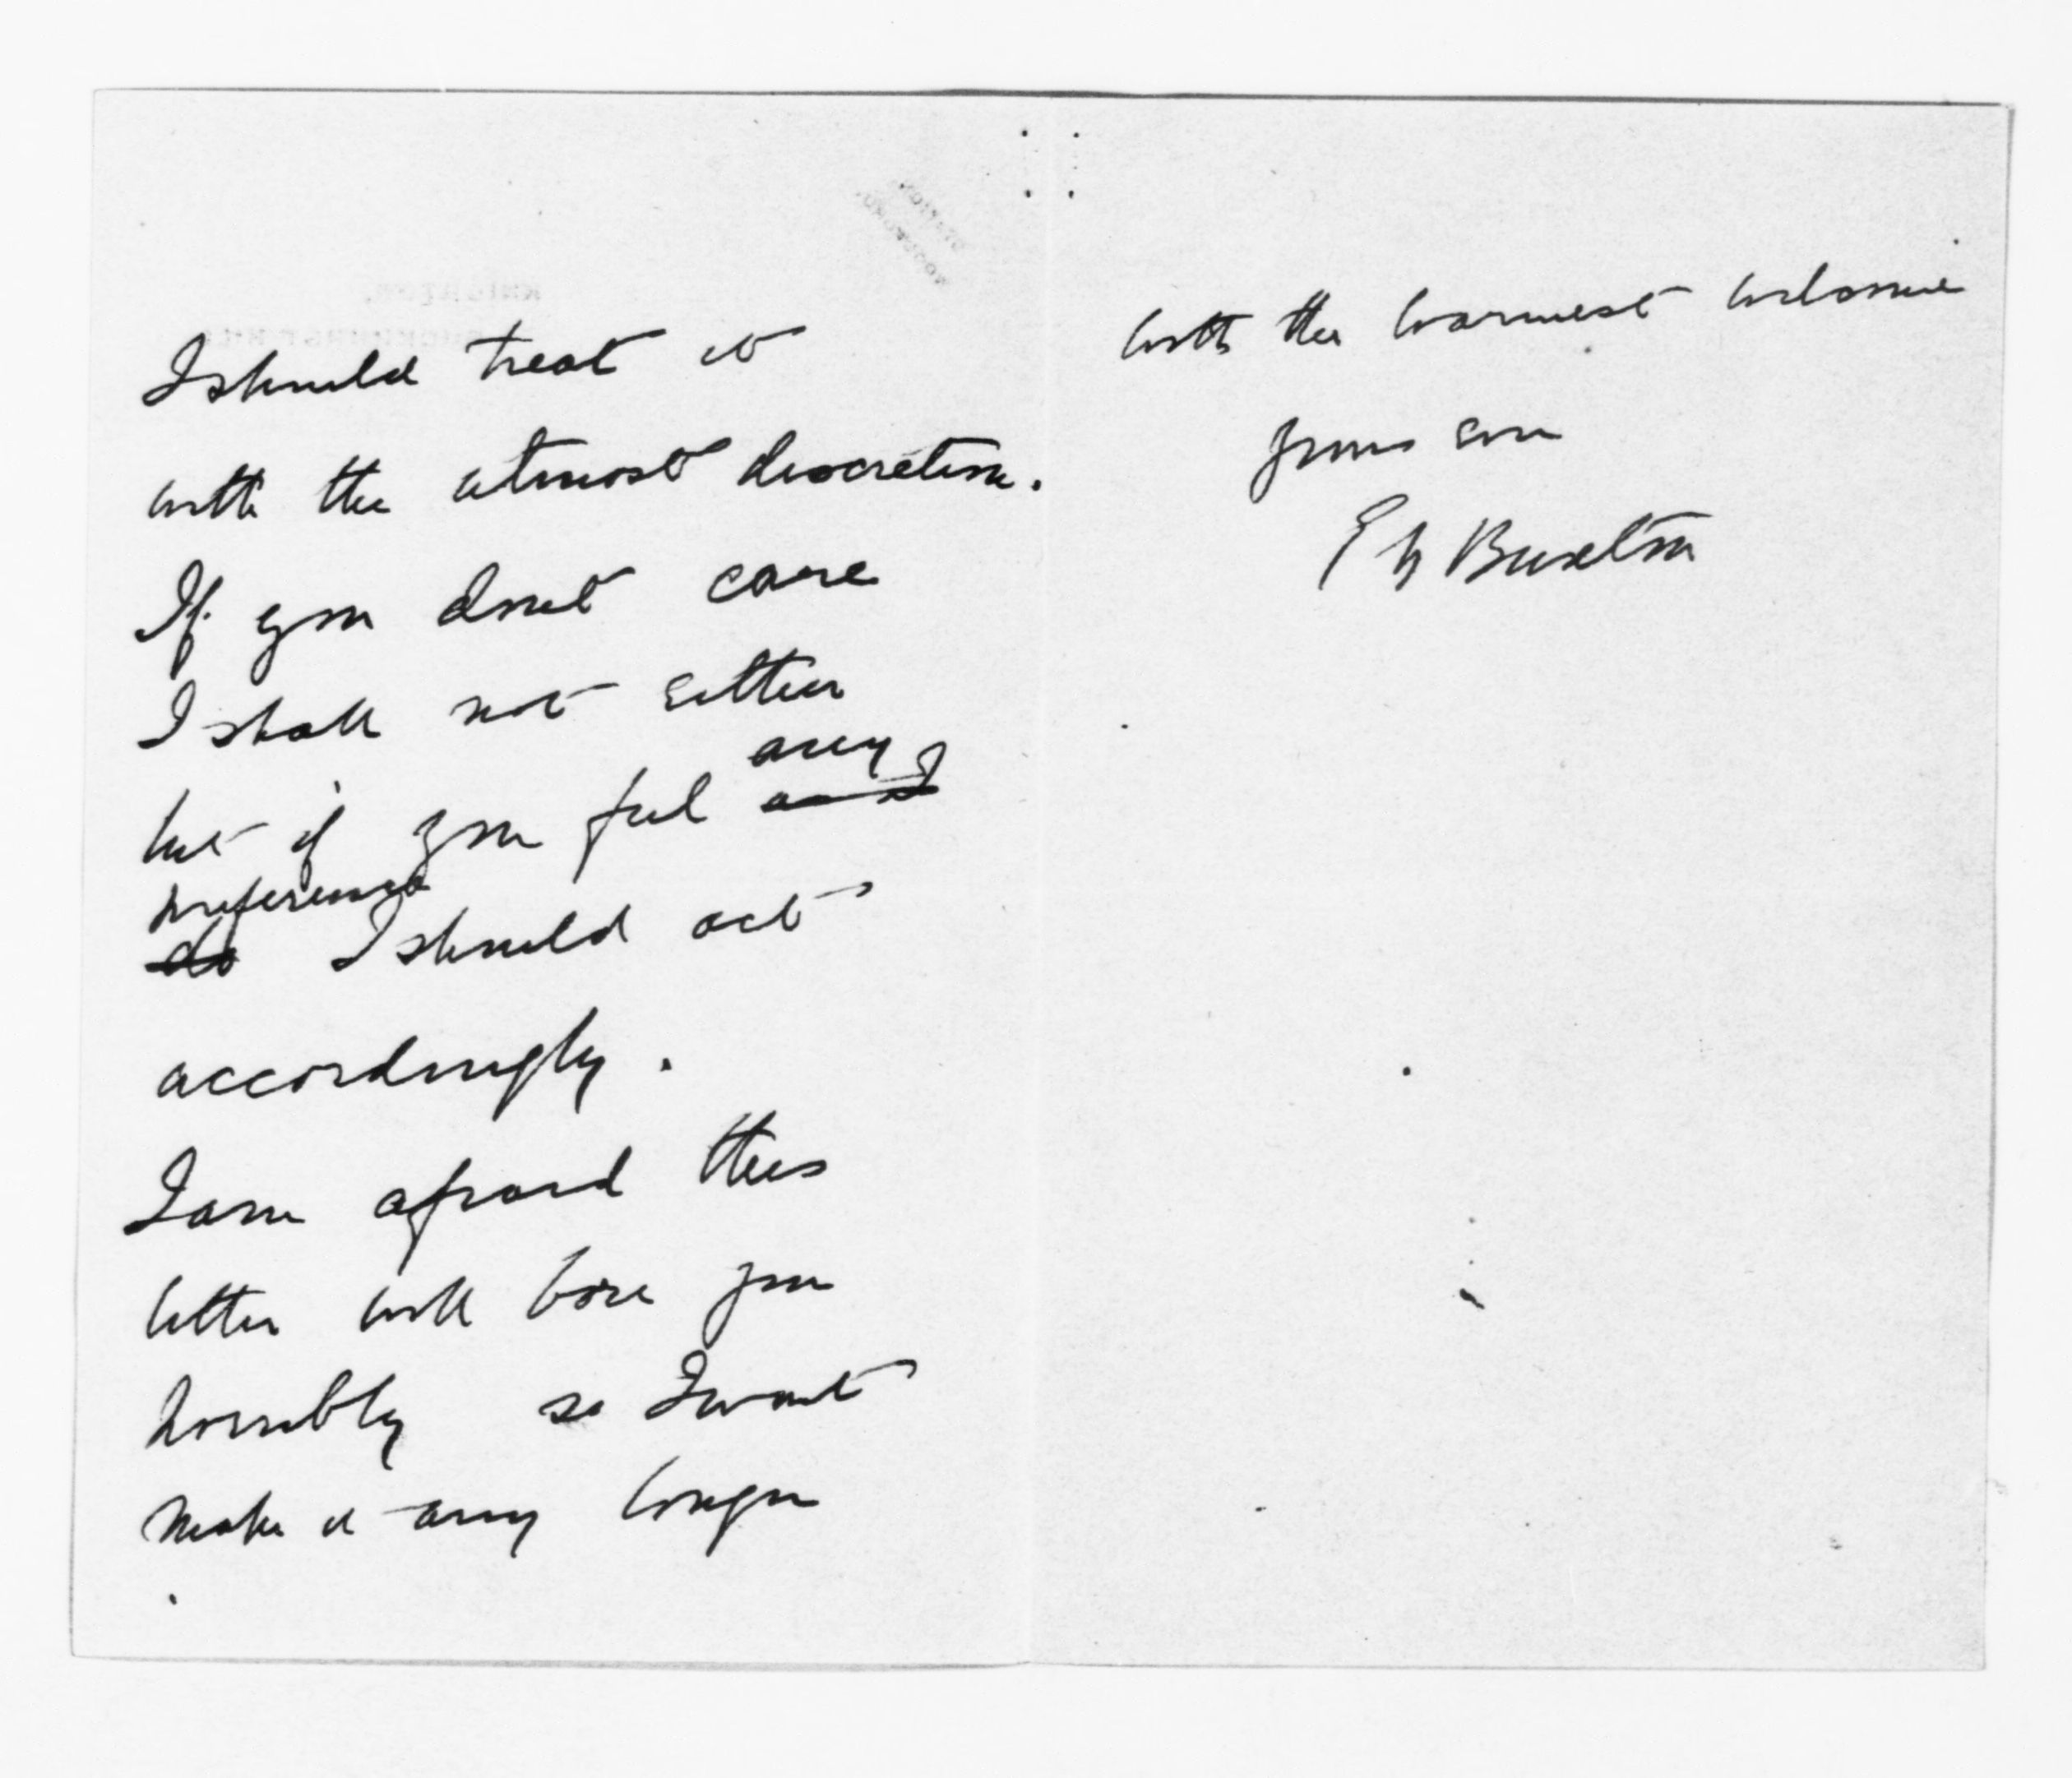 I should treat it
with the utmost discretion.
If you dont care
I shall not either
but if you feel any
preference
do I should act
accordingly.
I am afraid this
letter will bore you
horribly so I wont
make it any longer
with the warmest welcome
yours ever
E N Buxton